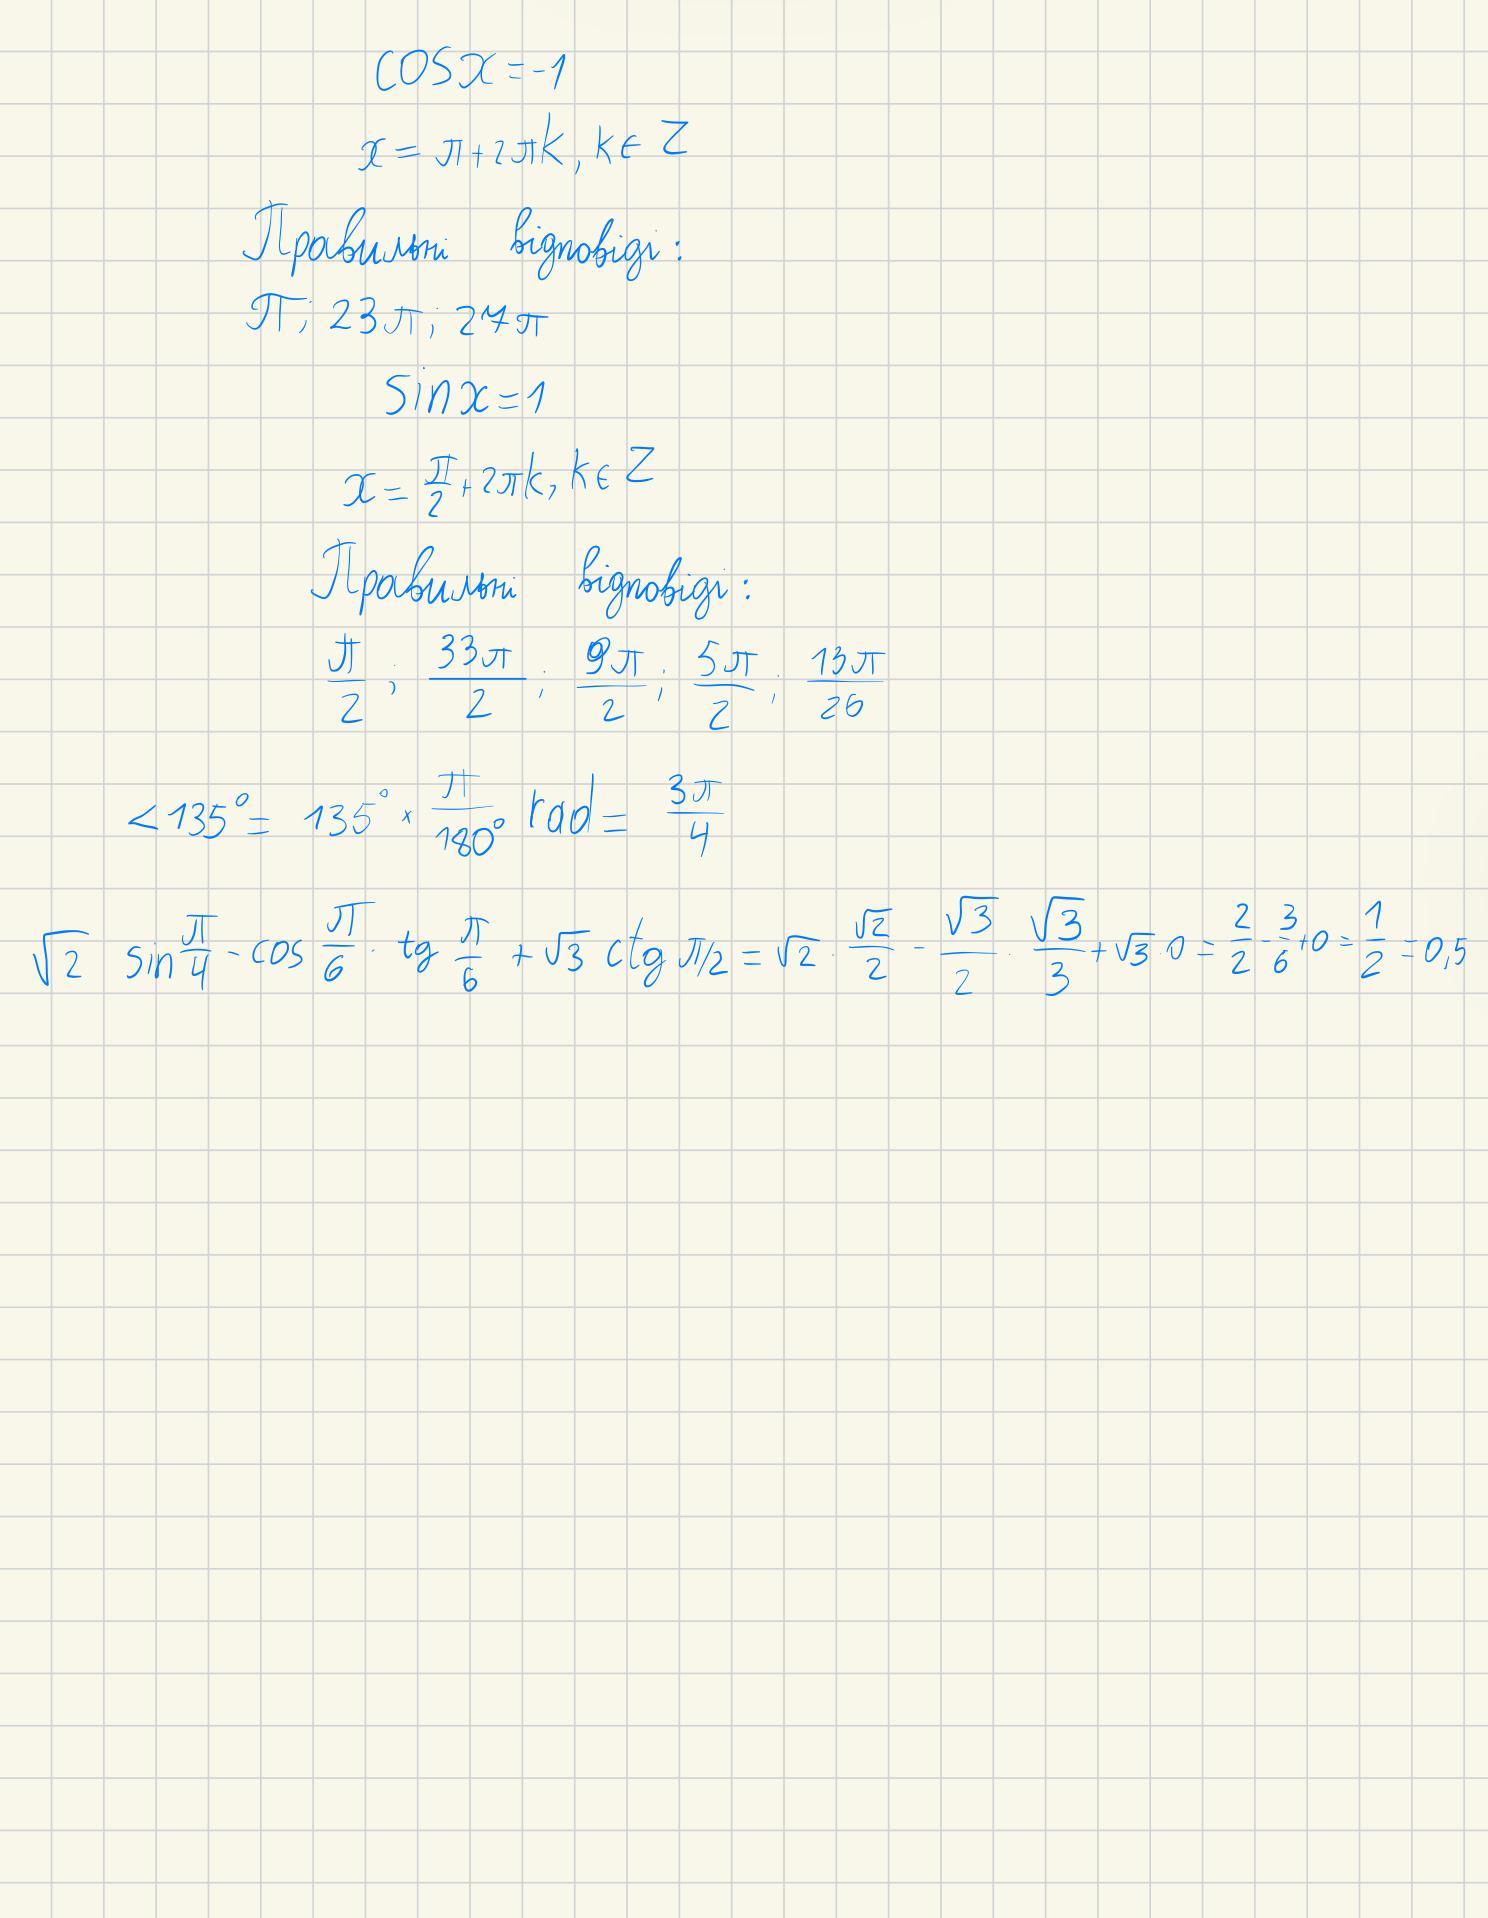 cosx=-1
x = π+2πk, k∈ Z
Правильні відповіді:
π; 23π; 27π
sinx=1
x = π/2 + 2πk, k∈ Z
Правильні відповіді:
π/2 ; 33π/2 ; 9π/2 ; 5π/2 ; 13π/26
<135° = 135° × π/180° rad = 3π/4
√2 sin π/4 - cos π/6 · tg π/6 + √3 ctg π/2 = √2 · √2/2 - √3/2 · √3/3 + √3·0 = 2/2 - 3/6 + 0 = 1/2 = 0,5